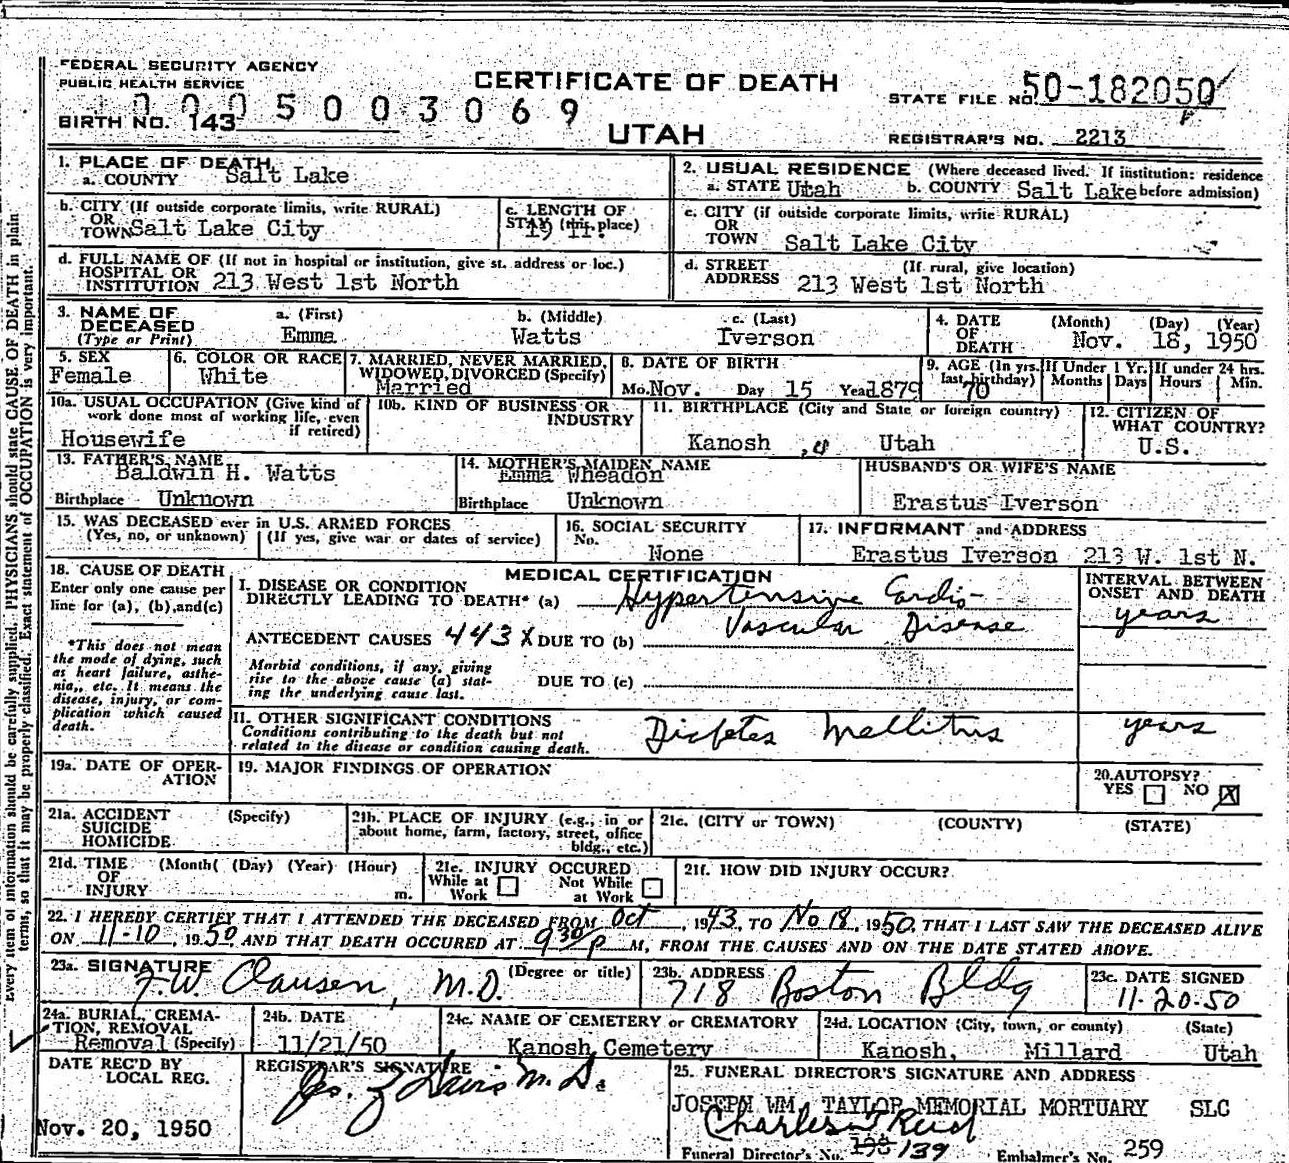 FEDERAL SECURITY AGENCY
PUBLIC HEALTH SERVICE
CERTIFICATE OF DEATH
UTAH
STATE FILE NO. 50-182050
REGISTRAR'S NO. 2213
BIRTH NO. 143
0005003069
1. PLACE OF DEATH
a. COUNTY Salt Lake
2. USUAL RESIDENCE (Where deceased lived. If institution: residence before admission)
a. STATE Utah b. COUNTY Salt Lake
b. CITY (If outside corporate limits, write RURAL)
OR
TOWN Salt Lake City
c. LENGTH OF
STAY (this place)
c. CITY (if outside corporate limits, write RURAL)
OR
TOWN Salt Lake City
d. FULL NAME OF (If not in hospital or institution, give st. address or loc.)
HOSPITAL OR
INSTITUTION 213 West 1st North
d. STREET (If rural, give location)
ADDRESS 213 West 1st North
3. NAME OF DECEASED (Type or Print)
a. (First) b. (Middle) c. (Last)
Emma Watts Iverson
4. DATE OF DEATH (Month) (Day) (Year)
Nov. 18, 1950
5. SEX
Female
6. COLOR OR RACE
White
7. MARRIED, NEVER MARRIED,
WIDOWED, DIVORCED (Specify)
Married
8. DATE OF BIRTH
Mo. Nov. Day 15 Year 1879
9. AGE (In yrs. last birthday) 70
If Under 1 Yr. Months Days
If under 24 hrs. Hours Min.
10a. USUAL OCCUPATION (Give kind of
work done most of working life, even
if retired)
Housewife
10b. KIND OF BUSINESS OR
INDUSTRY
11. BIRTHPLACE (City and State or foreign country)
Kanosh , Utah
12. CITIZEN OF
WHAT COUNTRY?
U.S.
13. FATHER'S NAME
Baldwin H. Watts
Birthplace Unknown
14. MOTHER'S MAIDEN NAME
Emma Wheadon
Birthplace Unknown
HUSBAND'S OR WIFE'S NAME
Erastus Iverson
15. WAS DECEASED ever in U.S. ARMED FORCES
(Yes, no, or unknown) (If yes, give war or dates of service)
16. SOCIAL SECURITY
No.
None
17. INFORMANT and ADDRESS
Erastus Iverson 213 W. 1st N.
18. CAUSE OF DEATH
Enter only one cause per
line for (a), (b), and (c)
*This does not mean
the mode of dying, such
as heart failure, asthe-
nia,, etc. It means the
disease, injury, or com-
plication which caused
death.
MEDICAL CERTIFICATION
I. DISEASE OR CONDITION
DIRECTLY LEADING TO DEATH* (a) Hypertensive Cardio-
Vascular Disease
ANTECEDENT CAUSES 443X DUE TO (b)
Morbid conditions, if any, giving
rise to the above cause (a) stat-
ing the underlying cause last.
DUE TO (c)
INTERVAL BETWEEN
ONSET AND DEATH
years
II. OTHER SIGNIFICANT CONDITIONS
Conditions contributing to the death but not
related to the disease or condition causing death.
Diabetes Mellitus
years
19a. DATE OF OPER-
ATION
19. MAJOR FINDINGS OF OPERATION
20. AUTOPSY?
YES NO X
21a. ACCIDENT (Specify)
SUICIDE
HOMICIDE
21b. PLACE OF INJURY (e.g., in or
about home, farm, factory, street, office
bldg., etc.)
21c. (CITY or TOWN) (COUNTY) (STATE)
21d. TIME (Month( (Day) (Year) (Hour)
OF
INJURY m.
21e. INJURY OCCURED
While at Work Not While at Work
21f. HOW DID INJURY OCCUR?
22. I HEREBY CERTIFY THAT I ATTENDED THE DECEASED FROM Oct , 1943, TO No 18, 1950, THAT I LAST SAW THE DECEASED ALIVE
ON 11-10, 1950 AND THAT DEATH OCCURED AT 9 30/P M, FROM THE CAUSES AND ON THE DATE STATED ABOVE.
23a. SIGNATURE (Degree or title)
F.W. Clausen, M.D.
23b. ADDRESS
718 Boston Bldg
23c. DATE SIGNED
11-20-50
24a. BURIAL, CREMA-
TION, REMOVAL
Removal (Specify)
24b. DATE
11/21/50
24c. NAME OF CEMETERY or CREMATORY
Kanosh Cemetery
24d. LOCATION (City, town, or county) (State)
Kanosh, Millard Utah
DATE REC'D BY
LOCAL REG.
Nov. 20, 1950
REGISTRAR'S SIGNATURE
M.D.
25. FUNERAL DIRECTOR'S SIGNATURE AND ADDRESS
JOSEPH WM. TAYLOR MEMORIAL MORTUARY SLC
Charles T Reid
Funeral Director's No. 139 Embalmer's No. 259
Every item of information should be carefully supplied. PHYSICIANS should state CAUSE OF DEATH in plain
terms, so that it may be properly classified. Exact statement of OCCUPATION is very important.